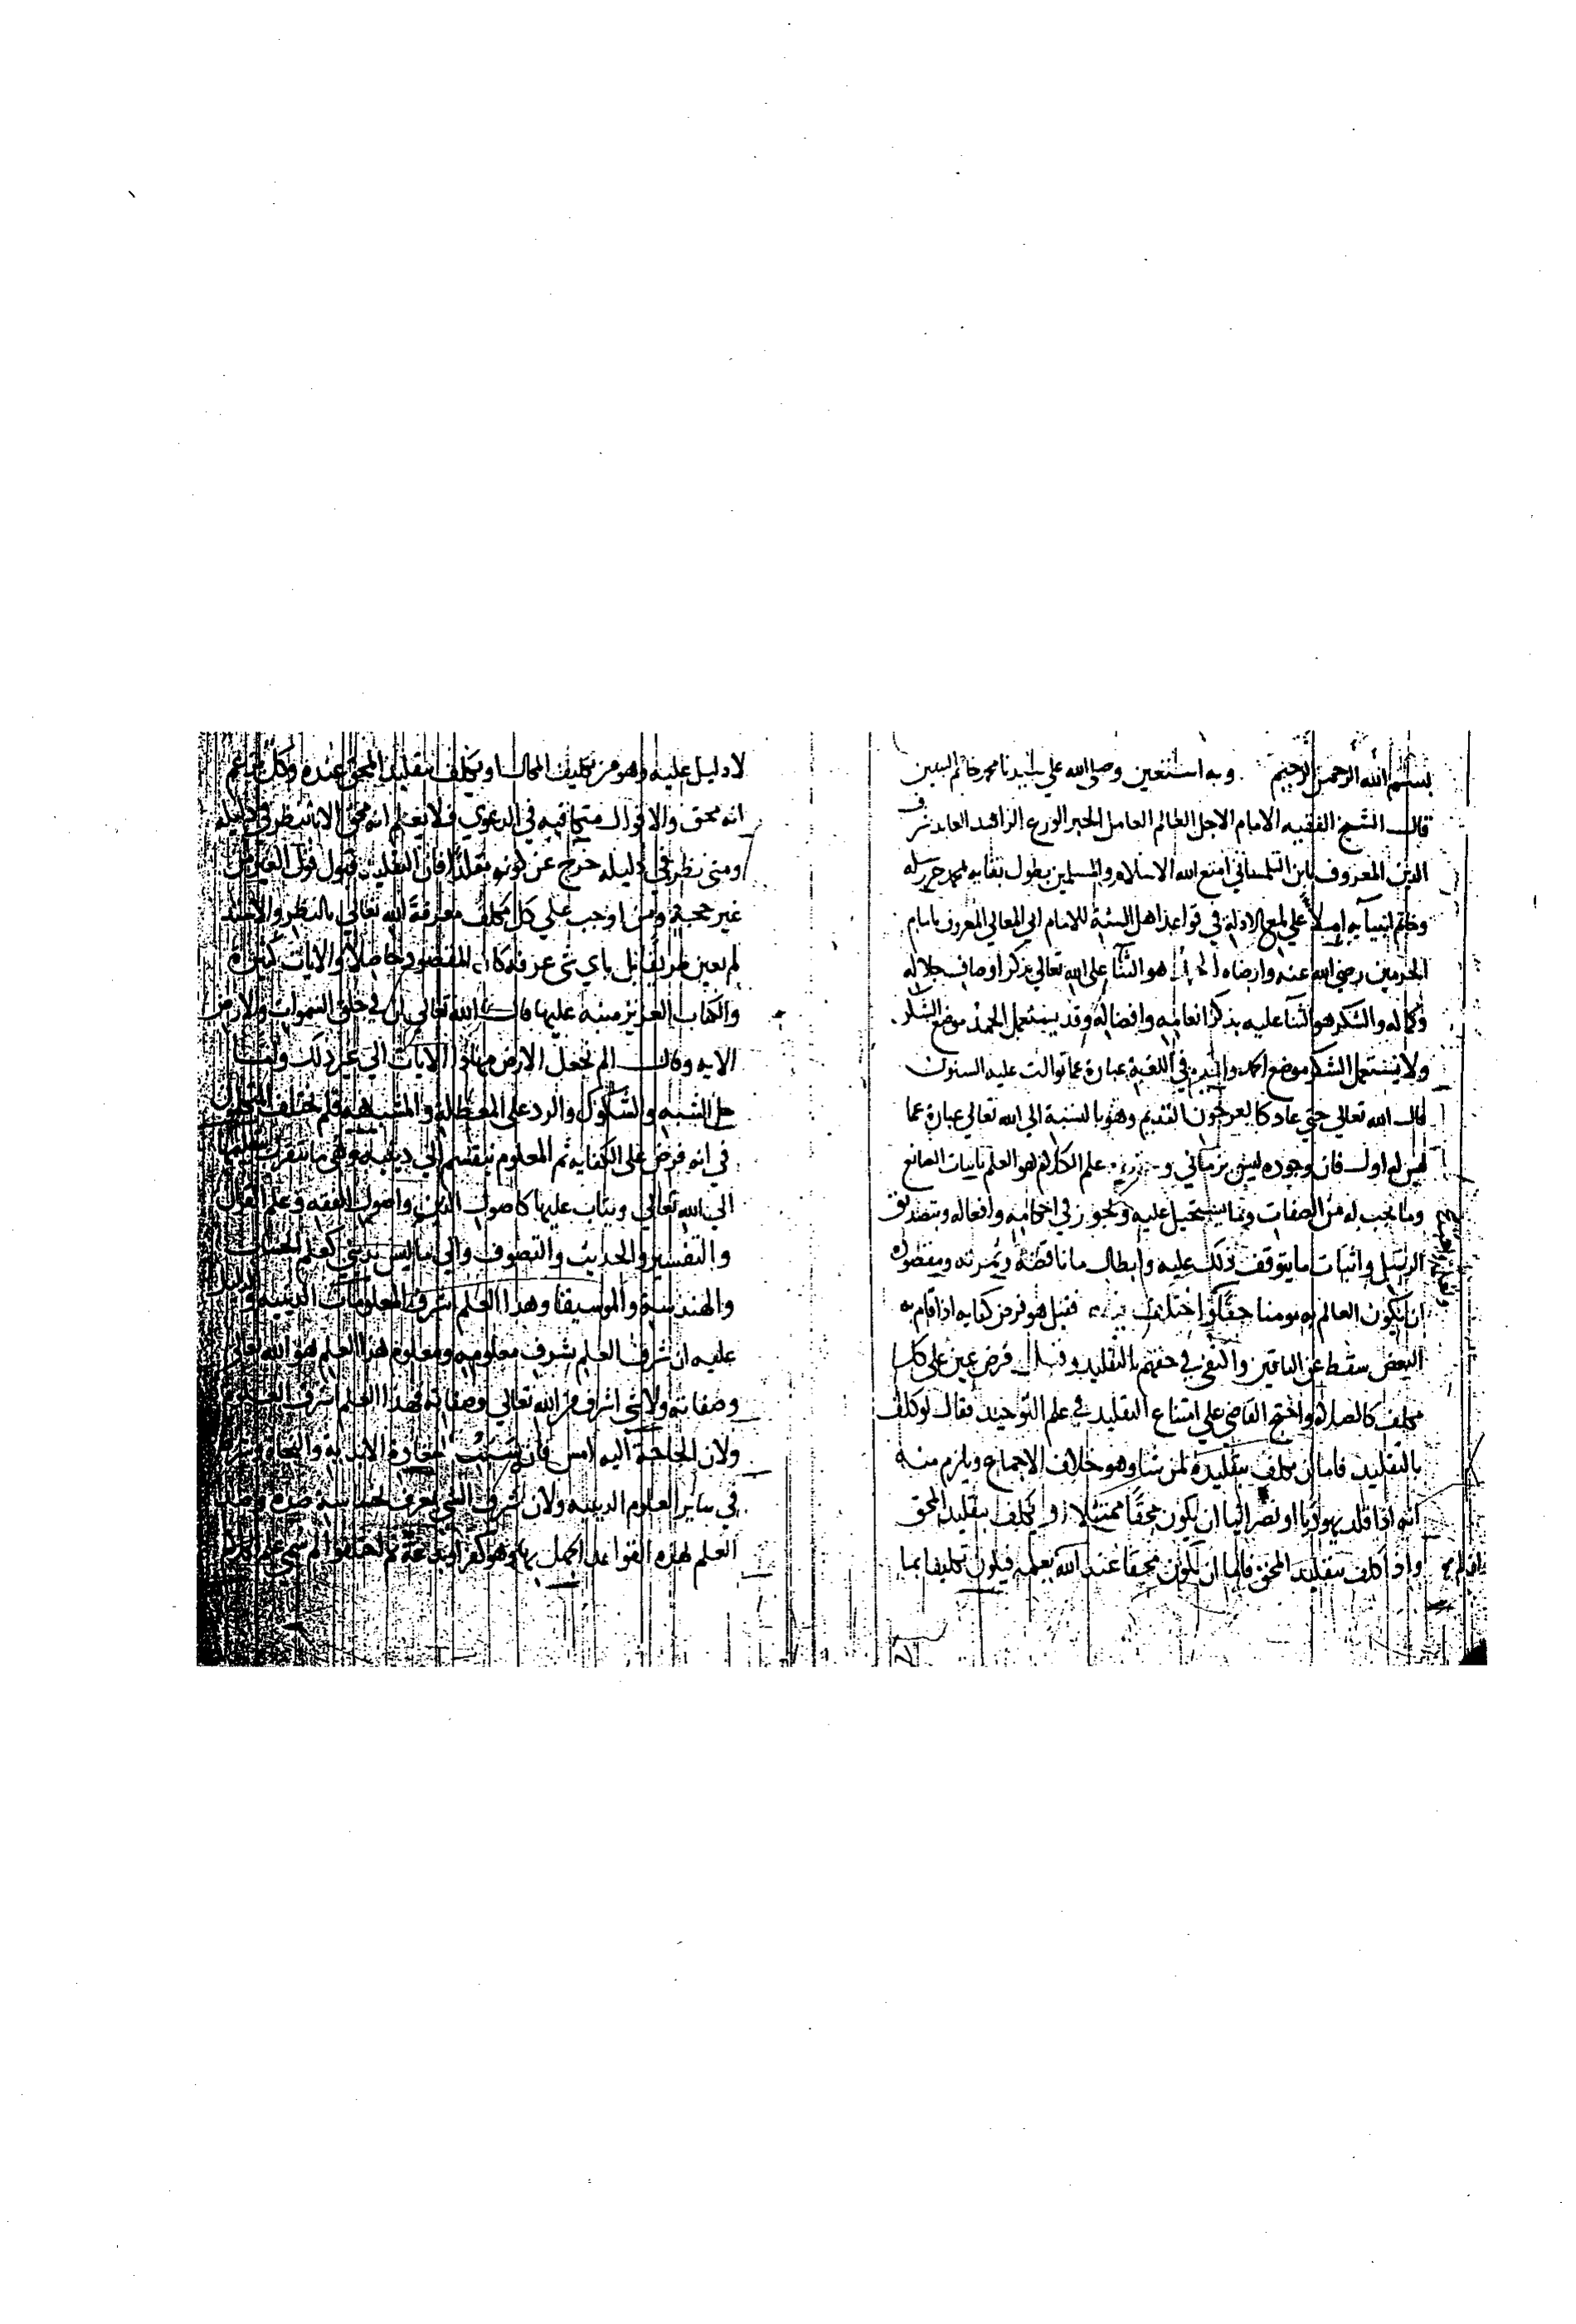 بسم الله الرحمن الرحيم وبه استعين وصلى الله علي سيدنا محمد خاتم النبيين
قال الشيخ الفقيه الامام الاجل العالم العامل الحبر الورع الزاهد العابد شرف
الدين المعروف بابن التلمساني امتع الله الاسلام والمسلمين بطول بقايه بمحمد
وخاتم انبيآيه املا علي لمع الادلة في قواعد اهل السنة للامام ابي المعالي المعروف بامام
الحرمين رضي الله عنه وارضاه هو الثنآ على الله تعالي بذكر اوصاف جلاله
وكماله والشكر هو الثنآ عليه بذكر انعامه وافضاله وقد يستعمل الحمد موضع الشكر
ولا يستعمل الشكر موضع الحمد في اللغة عبارة عما توالت عليه السنون
قال الله تعالي حتي عاد كالعرجون القديم وهو بالنسبة الي الله تعالي عبارة عما
ليس له اول فان وجوده ليس بزماني علم الكلام هو العلم باثبات الصانع
وما يجب له من الصفات وما يستحيل عليه ويجوز في احكامه وافعاله وتصديق
الرسل واثبات ما يتوقف ذلك عليه وابطال ما ناقضه وثمرته ومقصوده
ان يكون العالم به مومنا حقا اختلف فقيل هو فرض كفايه اذا قام به
البعض سقط عن الباقين واكتفي في حقهم بالتقليد وقيل فرض عين على كل
مكلف كالصلاة واحتج القاضي علي امتناع التقليد في علم التوحيد فقال لو كلف
بالتقليد فاما ان يكلف بتقليد من شا وهو خلاف الاجماع ويلزم منه
انه اذا قلد يهوديا او نصرانيا ان يكون محقا ممتثلا او يكلف بتقليد المحق
واذا كلف بتقليد المحق فاما ان يكون محقا عند الله بعلمه فيكون تكليفا بما
لا دليل عليه وهو من تكليف المحال او يكلف بتقليد المحق عنده وكل يزعم
انه محق والاقوال متكافيه في الدعوي فلا يعلم انه محق الا بالنظر في دليله
ومتي نظر في دليله خرج عن كونه مقلدا فان التقليد قبول قول الغير من
غير حجة ومن اوجب علي كل مكلف معرفة الله تعالي بالنظر والاستدلال
لم يعين طريقا بل باي شي عرفه كان المقصود حاصلا والايات كثيرة
والكتاب العزيز منبه عليها قال الله تعالى ان في خلق السموات والارض
الايه وقال الم نجعل الارض مهادا الايات الي غير ذلك
حل الشبه والشكوك والرد على المعطلة والمشبهة فلم يختلف
في انه فرض على الكفايه ثم المعلوم ينقسم الي دينيه وهي ما يتقرب
الي الله تعالى ويثاب عليها كاصول الدين واصول الفقه وعلم القران
والتفسير والحديث والتصوف والي ما ليس بديني كعلم الحساب
والهندسة والموسيقا وهذا العلم اشرف المعلومات الدينيه والدليل
عليه ان شرف العلم بشرف معلومه ومعلوم هذا العلم هو الله تعالى
وصفاته ولا شي اشرف من الله تعالي وصفاته فهذا العلم اشرف العلوم
ولان الحاجة اليه امس فانه سبب السعادة الابدية والنجاة
في ساير العلوم الدينيه ولان شرف الشي يعرف
العلم بهذه القواعد الجهل بها وهو كفر او بدعة